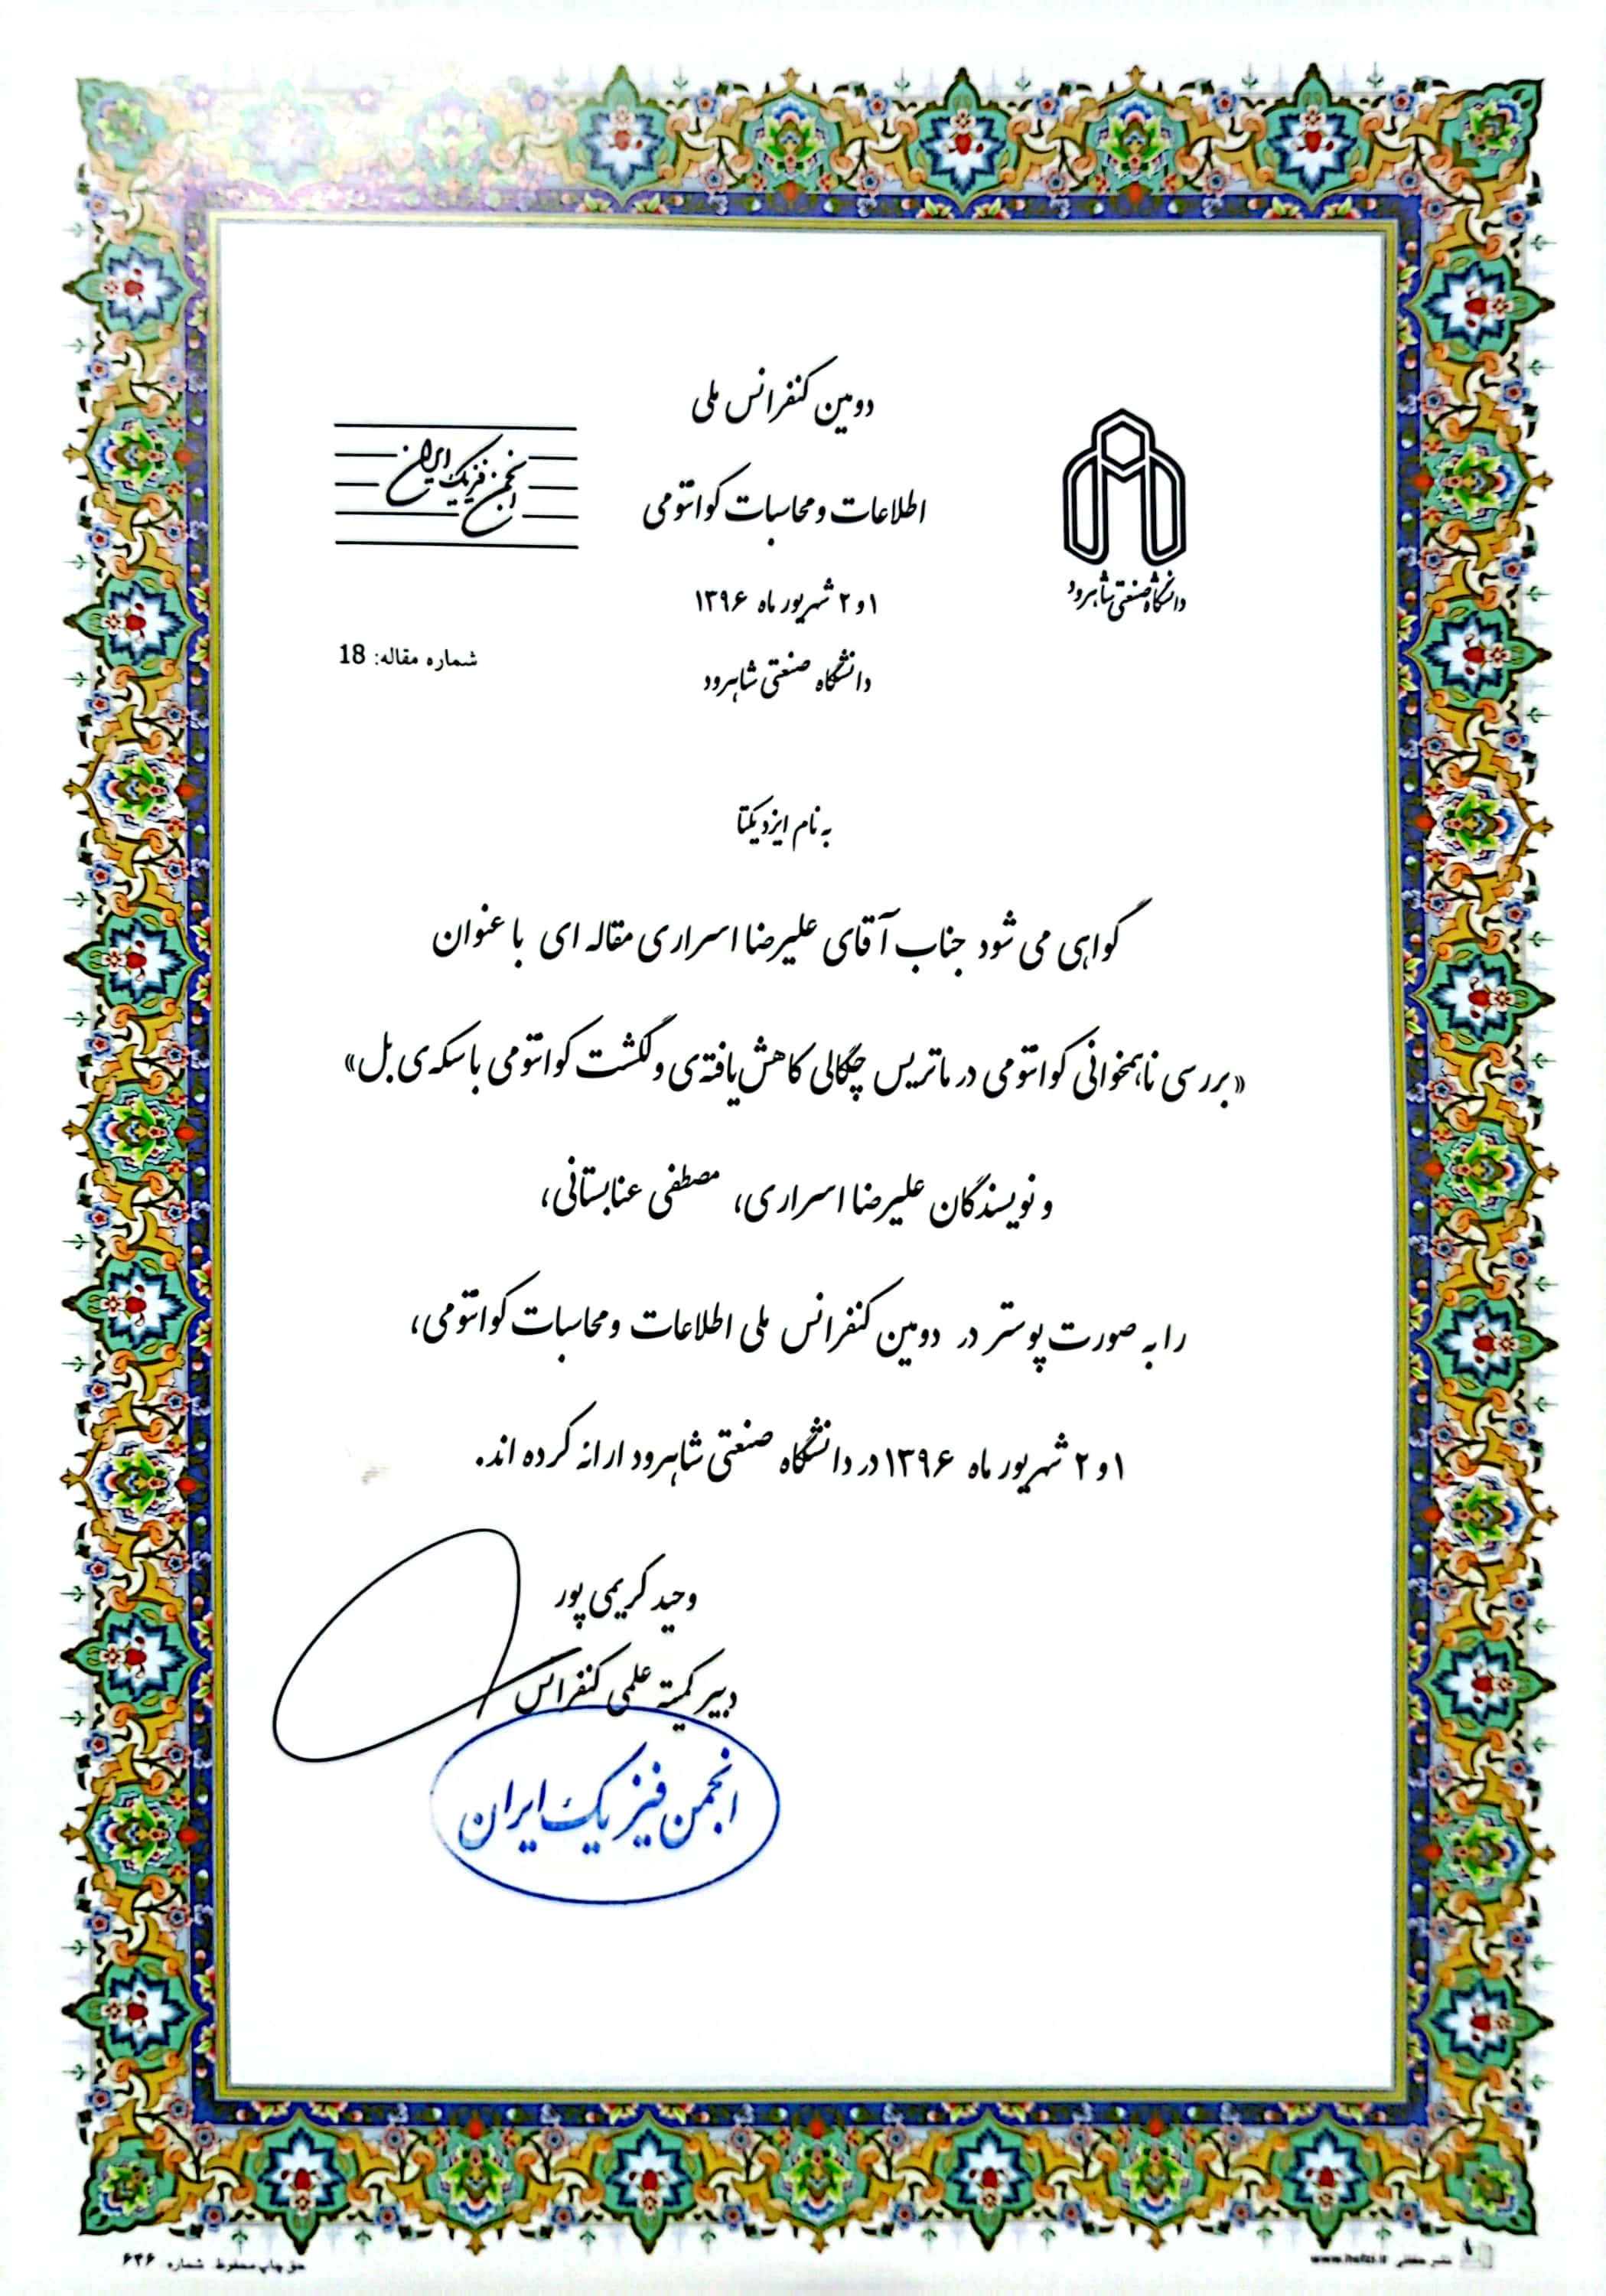 دومین کنفرانس ملی
اطلاعات و محاسبات کوانتومی
۱ و ۲ شهریور ماه ۱۳۹۶
دانشگاه صنعتی شاهرود
دانشگاه صنعتی شاهرود
انجمن فیزیک ایران
شماره مقاله: 18
به نام ایزد یکتا
گواهی می شود جناب آقای علیرضا اسراری مقاله ای با عنوان
«بررسی ناهمخوانی کوانتومی در ماتریس چگالی کاهش یافته‌ی ولگشت کوانتومی با سکه‌ی بل»
و نویسندگان علیرضا اسراری، مصطفی عنابستانی،
را به صورت پوستر در دومین کنفرانس ملی اطلاعات و محاسبات کوانتومی،
۱ و ۲ شهریور ماه ۱۳۹۶ در دانشگاه صنعتی شاهرود ارائه کرده اند.
وحید کریمی پور
دبیر کمیته علمی کنفرانس
انجمن فیزیک ایران
حق چاپ محفوظ شماره ۶۴۶